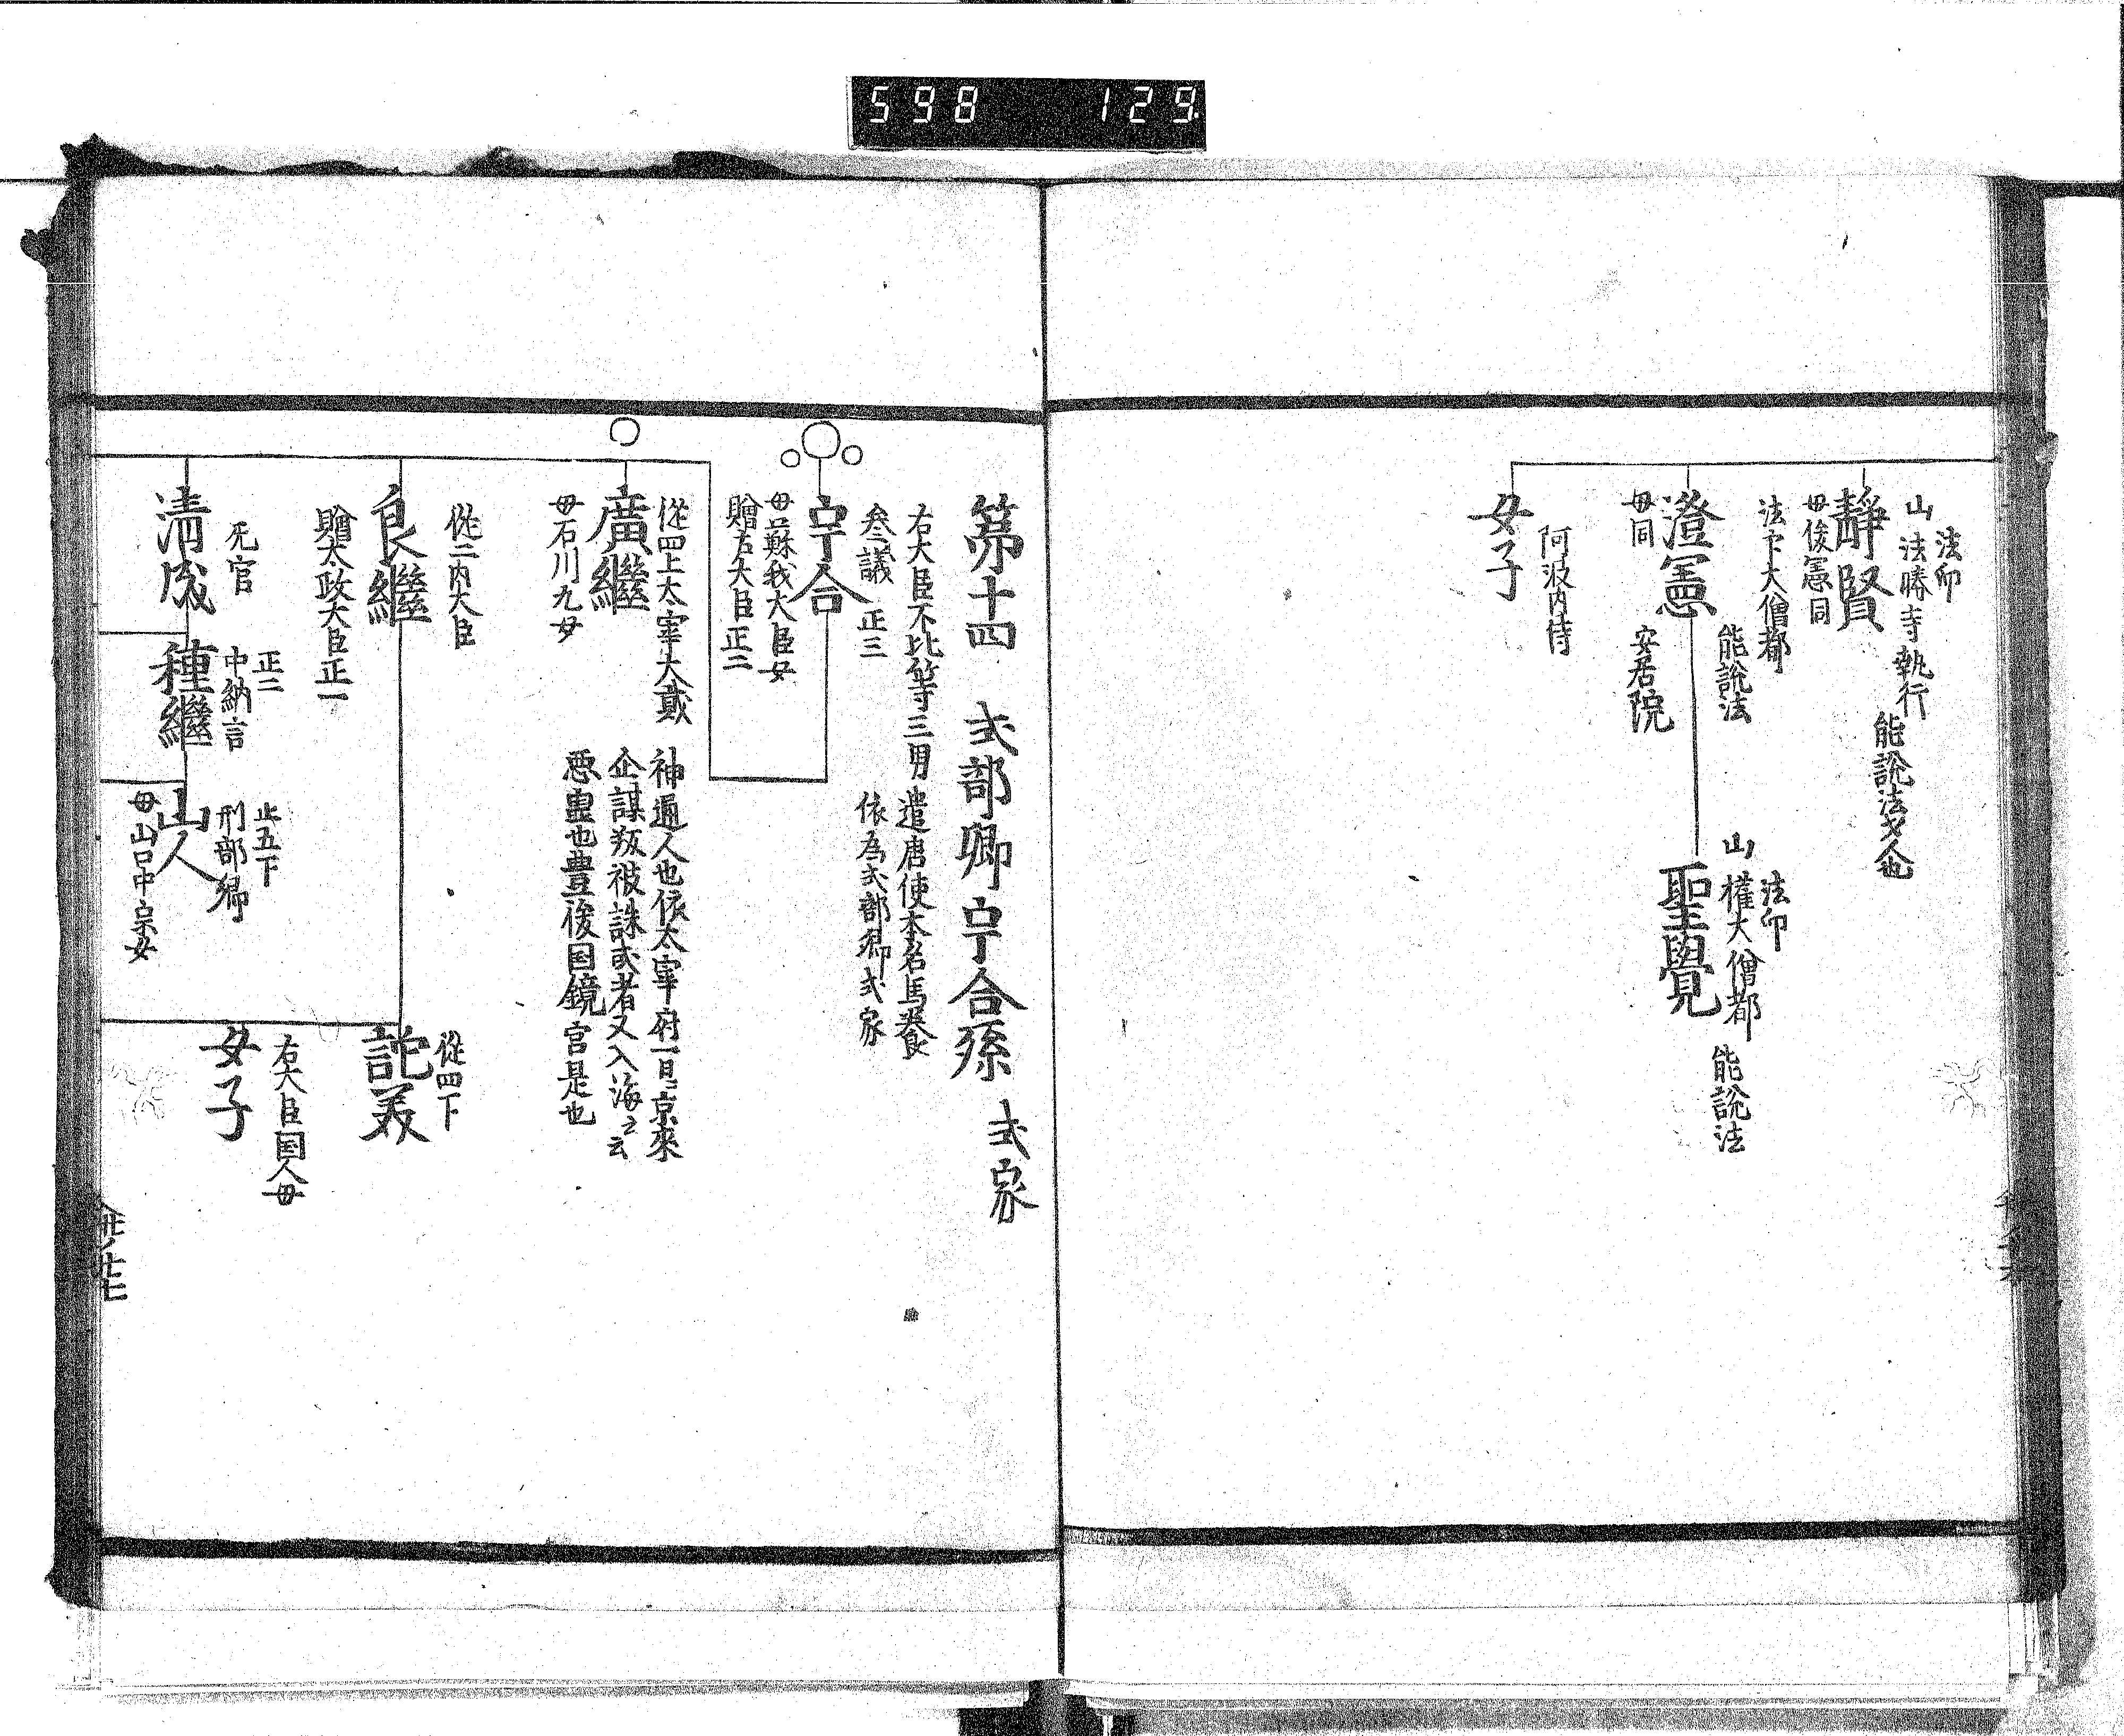 598 129
法印
山 法勝寺執行
能說法久人也
靜賢
母俊憲同
法下大僧都
能說法
澄憲
母同
安居院
法印
山 権大僧都
能說法
聖覺
阿波内侍
女子
第十四 式部卿宇合孫 式家
右大臣不比等三男
遣唐使本名馬養
参議 正三
依為式部卿式家
宇合
母蘇我大臣女
贈左大臣正二
從四上太宰大貳
廣繼
母石川九女
神通人也依太宰府一日ニ京來
企謀叛被誅或者又入海云云
悪霊也豊後国鏡宮是也
従二内大臣
良繼
贈太政大臣正一
從四下
託美
右大臣国人母
女子
无官
清成
正二
中納言
種繼
正五下
刑部卿
山人
母山口中宗女